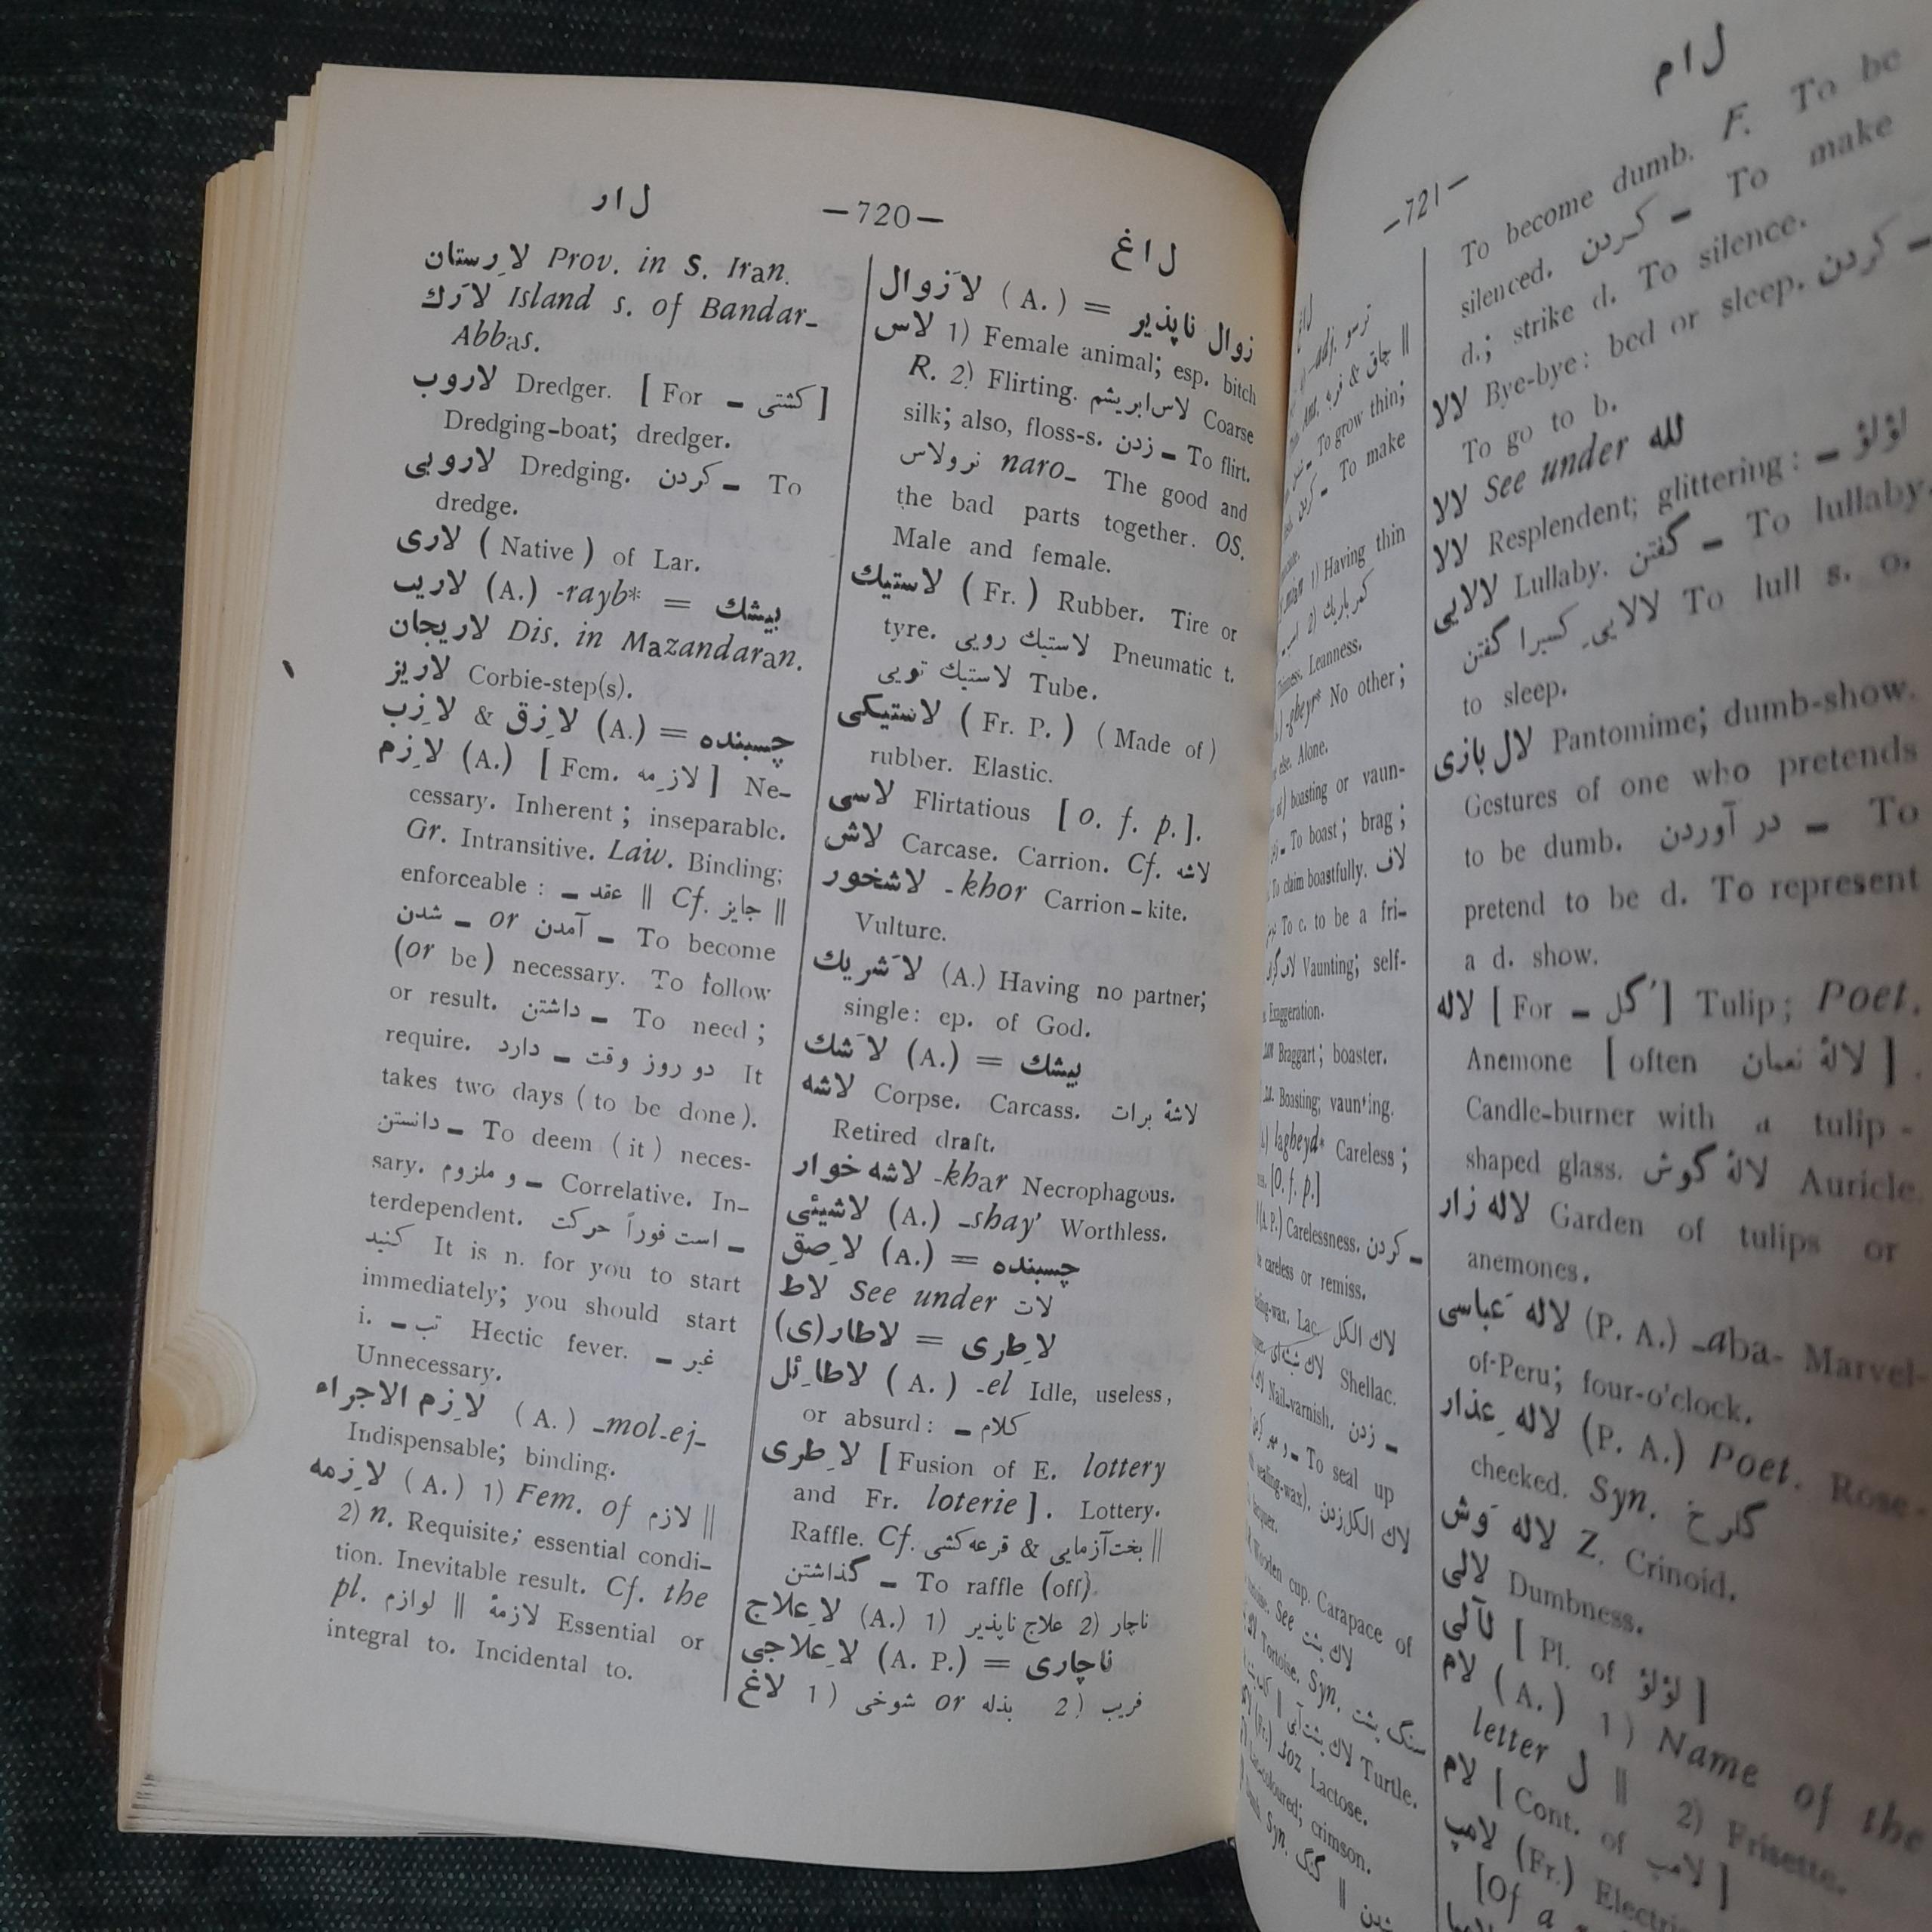 ل ار
—720—
ل اغ
لارِستان Prov. in S. Iran.
لارَك Island s. of Bandar-
Abbas.
لاروب Dredger. [ For کشتی ـ ]
Dredging-boat; dredger.
لاروبی Dredging. کردن ـ To
dredge.
لاری ( Native ) of Lar.
لاریب (A.) -rayb* = بیشك
لاریجان Dis. in Mazandaran.
لاریز Corbie-step(s).
لازِب & لازِق (A.) = چسبنده
لازِم (A.) [ Fem. لازِمه ] Ne-
cessary. Inherent; inseparable.
Gr. Intransitive. Law. Binding;
enforceable : عقد ـ || Cf. جایز ||
شدن ـ or آمدن ـ To become
(or be) necessary. To follow
or result. داشتن ـ To need ;
require. دو روز وقت ـ دارد It
takes two days ( to be done ).
دانستن ـ To deem ( it ) neces-
sary. و ملزوم ـ Correlative. In-
terdependent. ـ است فوراً حرکت
کنید It is n. for you to start
immediately; you should start
i. تب ـ Hectic fever. غیر ـ
Unnecessary.
لازِم الاجراء (A.) -mol-ej-
Indispensable; binding.
لازِمه (A.) 1) Fem. of لازم ||
2) n. Requisite; essential condi-
tion. Inevitable result. Cf. the
pl. لوازم || لازمهٔ Essential or
integral to. Incidental to.
لاَزوال (A.) =
زوال ناپذیر
لاس 1) Female animal; esp. bitch
R. 2) Flirting. لاس ابریشم Coarse
silk; also, floss-s. زدن ـ To flirt.
نرولاس naro- The good and
the bad parts together. OS.
Male and female.
لاستیك ( Fr. ) Rubber. Tire or
tyre. لاستیك رویی Pneumatic t.
لاستیك تویی Tube.
لاستیکی ( Fr. P. ) ( Made of )
rubber. Elastic.
لاسی Flirtatious [ o. f. p. ].
لاش Carcase. Carrion. Cf. لاشه
لاشخور -khor Carrion-kite.
Vulture.
لاَشریك (A.) Having no partner;
single: ep. of God.
لاَشك (A.) = بیشك
لاشه Corpse. Carcass. لاشهٔ برات
Retired draft.
لاشه خوار -khar Necrophagous.
لاشیئی (A.) -shay' Worthless.
لاصِق (A.) = چسبنده
لاط See under لات
لاطار(ی) = لاطِری
لاطائِل ( A. ) -el Idle, useless,
or absurd : کلام ـ
لاطِری [ Fusion of E. lottery
and Fr. loterie ]. Lottery.
Raffle. Cf. بخت‌آزمایی & قرعه کشی ||
گذاشتن ـ To raffle (off).
لاعِلاج (A.) (1 ناچار (2 علاج ناپذیر
لاعِلاجی (A. P.) = ناچاری
لاغ (1 شوخی or بذله (2 فریب
—721—
ل ام
To grow thin;
To make
1) Having thin
Leanness.
No other;
else. Alone.
boasting or vaun-
To boast ; brag ;
To claim boastfully. لاف
To c. to be a fri-
Vaunting; self-
Exaggeration.
Braggart; boaster.
Boasting; vaunting.
lagheyd* Careless ;
[O. f. p.]
(A. P.) Carelessness. کردن ـ
careless or remiss.
Lac. لاك الكل
Shellac.
Nail-varnish. زدن ـ
To seal up
لاك الكل زدن
Wooden cup. Carapace of
See لاك پشت
Tortoise. Syn. سنگ پشت
لاك پشت آبی Turtle.
(Fr.) -toz Lactose.
crimson.
Syn. گنگ || شدن
To become dumb. F. To be
silenced. کردن ـ To make
d.; strike d. To silence.
لالا Bye-bye: bed or sleep. کردن ـ
To go to b.
لالا See under لله
لالا Resplendent; glittering : لؤلؤ ـ
لالایی Lullaby. گفتن ـ To lullaby.
لالاییِ کسیرا گفتن To lull s. o.
to sleep.
لال بازی Pantomime; dumb-show.
Gestures of one who pretends
to be dumb. در آوردن ـ To
pretend to be d. To represent
a d. show.
لاله [ For گُل ـ ] Tulip; Poet.
Anemone [ often لالهٔ نعمان ] .
Candle-burner with a tulip-
shaped glass. لالهٔ گوش Auricle.
لاله زار Garden of tulips or
anemones.
لاله عَباسی (P. A.) -aba- Marvel-
of-Peru; four-o'clock.
لاله عِذار (P. A.) Poet. Rose-
checked. Syn. گلرخ
لاله وَش Z. Crinoid.
لالی Dumbness.
لآلی [ Pl. of لؤلؤ ]
لام (A.) 1) Name of the
letter ل || 2) Frisette.
لام [ Cont. of لامپ ]
لامپ (Fr.)
[Of a